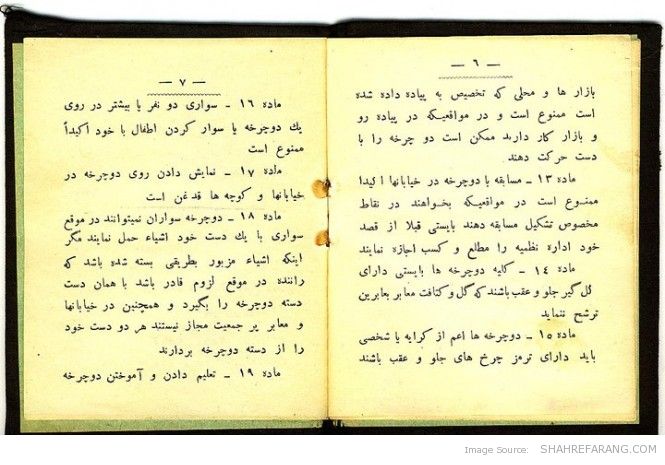 — ٦ —
بازار ها و محلی که تخصیص به پیاده داده شده
است ممنوع است و در مواقعیکه در پیاده رو
و بازار کار دارند ممکن است دو چرخه را با
دست حرکت دهند
ماده ۱۳ ـ مسابقه با دوچرخه در خیابانها اکیدا
ممنوع است در مواقعیکه بخواهند در نقاط
مخصوص تشکیل مسابقه دهند بایستی قبلا از قصد
خود اداره نظمیه را مطلع و کسب اجازه نمایند
ماده ۱٤ ـ کلیه دوچرخه ها بایستی دارای
گل گیر جلو و عقب باشند که گل و کثافت معابر بعابرین
ترشح ننماید
ماده ۱۵ ـ دوچرخه ها اعم از کرایه یا شخصی
باید دارای ترمز چرخ های جلو و عقب باشند
— ۷ —
ماده ۱٦ ـ سواری دو نفر یا بیشتر در روی
یك دوچرخه یا سوار کردن اطفال با خود اکیداً
ممنوع است
ماده ۱۷ ـ نمایش دادن روی دوچرخه در
خیابانها و کوچه ها قدغن است
ماده ۱۸ ـ دوچرخه سواران نمیتوانند در موقع
سواری با یك دست خود اشیاء حمل نمایند مگر
اینکه اشیاء مزبور بطریقی بسته شده باشد که
راننده در موقع لزوم قادر باشد با همان دست
دسته دوچرخه را بگیرد و همچنین در خیابانها
و معابر پر جمعیت مجاز نیستند هر دو دست خود
را از دسته دوچرخه بردارند
ماده ۱۹ ـ تعلیم دادن و آموختن دوچرخه
Image Source: SHAHREFARANG.COM